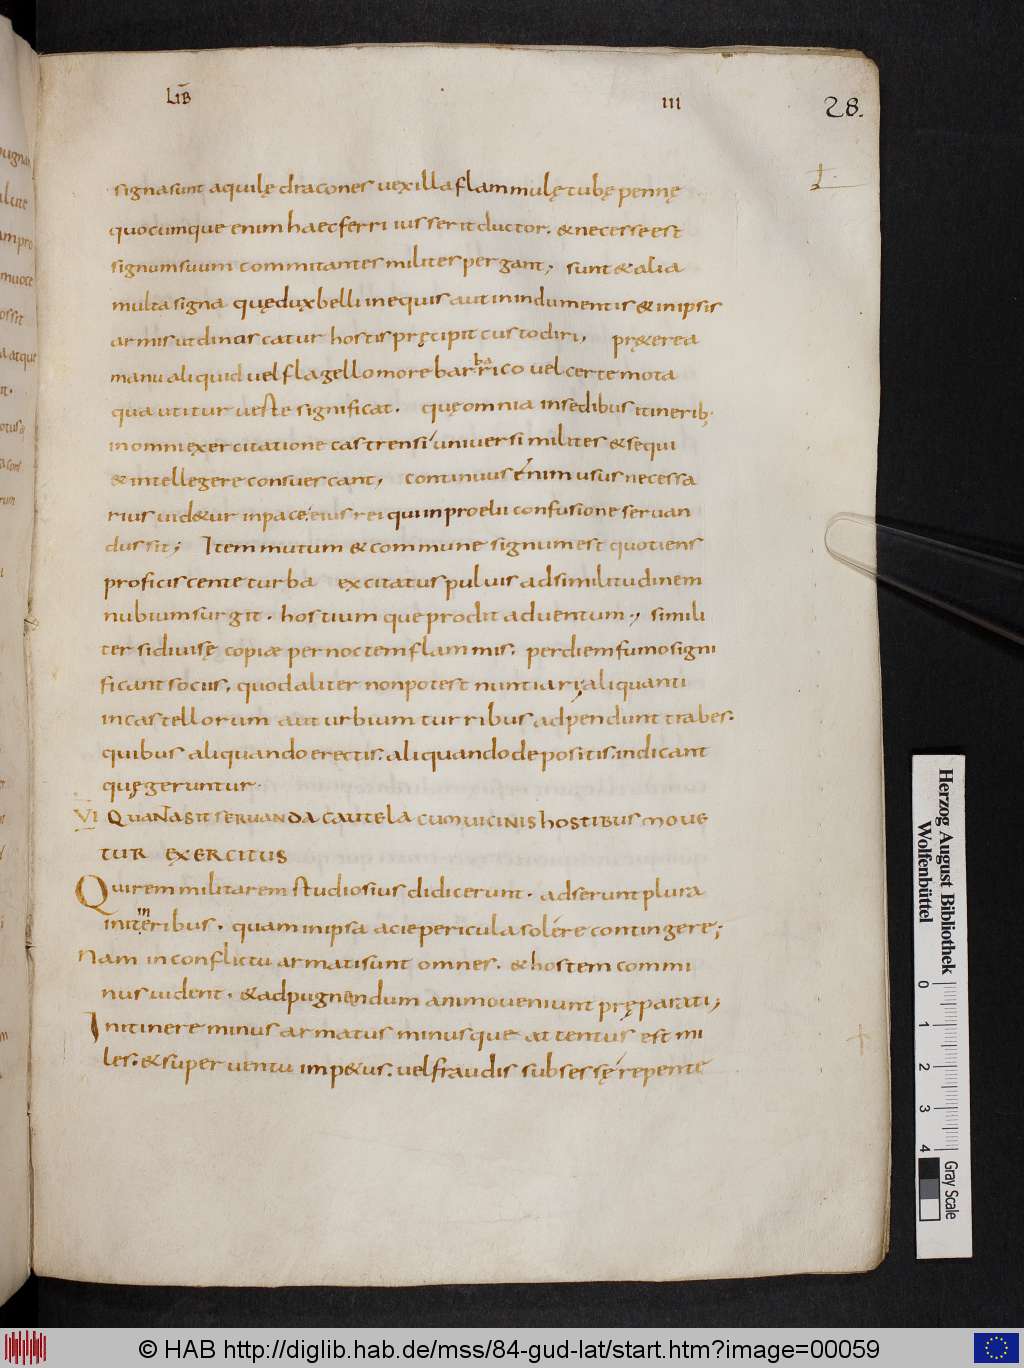 LIB̅ III 28.
signa sunt aquilę dracones vexilla flammulę tubę pennę
quocumque enim haec ferri iusserit ductor. & necesse est
signum suum commitantes milites pergant; sunt & alia
multa signa quę dux belli in equis aut in indumentis & in ipsis
armis ut dinoscatur hostis pręcipit custodiri, pręterea
manu aliquid vel flagello more barbarico vel certe mota
qua utitur veste significat. quę omnia in sedibus itinerib;
in omni exercitatione castrensi universi milites & sequi
& intellegere consuescant, continuus enim usus necessa
rius videtur in pace eius rei qui in proelii confusione servan
dus sit; Item mutum & commune signum est quotiens
proficiscente turba excitatus pulvis ad similitudinem
nubium surgit. hostium que prodit adventum; simili
ter si divisę copiæ per noctem flammis. per diem fumo signi
ficant sociis. quod aliter non potest nuntiari; aliquanti
in castellorum aut urbium turribus adpendunt trabes.
quibus aliquando erectis. aliquando depositis. indicant
quę geruntur.
VI QUANTA SIT SERVANDA CAUTELA CUM VICINIS HOSTIBUS MOVE
TUR EXERCITUS
Qui rem militarem studiosius didicerunt. adserunt plura
in itineribus. quam in ipsa acie pericula solére contingere;
Nam in conflictu armati sunt omnes. & hostem commi
nus vident. & ad pugnandum animo veniunt pręparati;
In itinere minus armatus minusque attentus est mi
les. & superventu imp&us. vel fraudis subsessę repente
Herzog August Bibliothek
Wolfenbüttel
0 1 2 3 4
Gray Scale
© HAB http://diglib.hab.de/mss/84-gud-lat/start.htm?image=00059